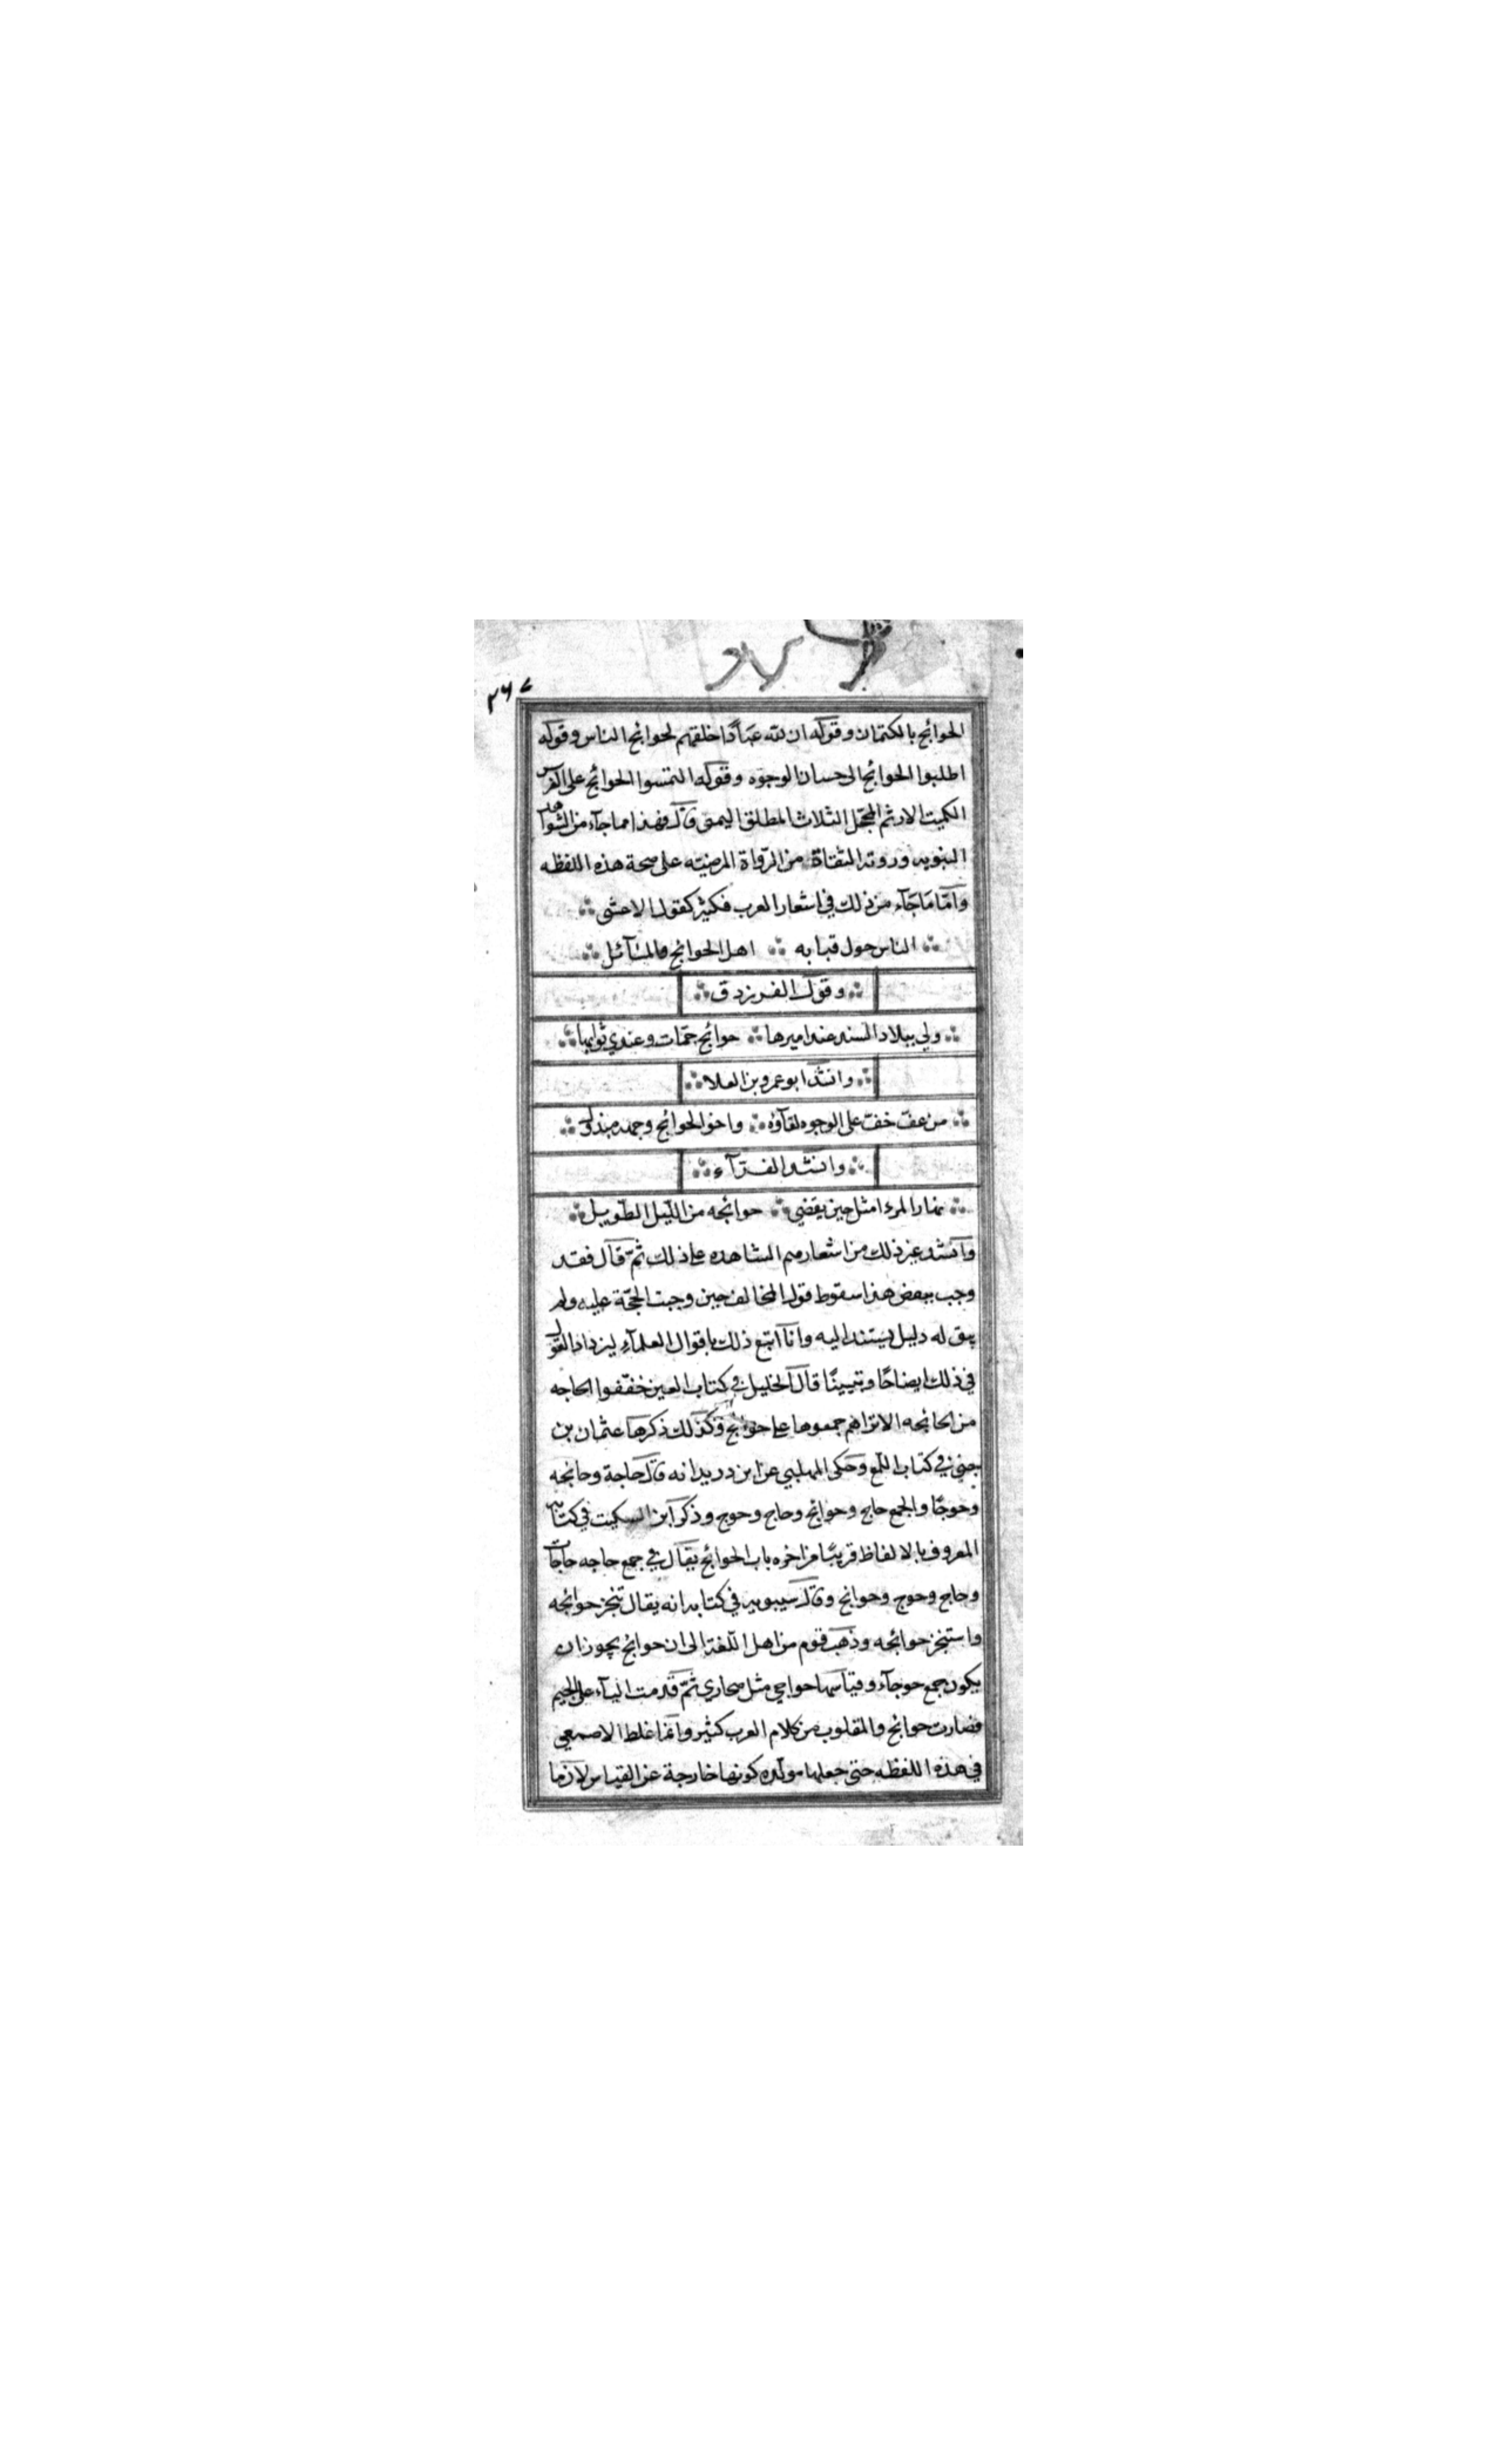 ٢٦٧
الحوائج بالكتمان وقوله ان لله عبادًا خلقهم لحوائج الناس وقوله
اطلبوا الحوائج الى حسان الوجوه وقوله التمسوا الحوائج على الفرس
الكميت الارثم المحجّل الثلاث المطلق اليمنى قال فهذا مما جآء من الشواهد
النبويه وروته الثقاة من الرّواة المرضيّه على صحة هذه اللفظه
وامّا مَا جَآء من ذلك في اشعار العرب فكثير كقول الاعشى
الناس حول قبابه اهل الحوائج والمسآئل
وقول الفرزدق
ولي ببلاد السند عند اميرها حوائج جمّات وعندي ثوابها
وانشد ابو عمرو بن العلا
من عفّ خف على الوجوه لقآؤه واخو الحوائج وجهه مبذول
وانشد الفرّآء
نهار المرء امثل حين يقضي حوائجه من اللّيل الطّويل
وانشد غير ذلك من اشعارهم الشاهده على ذلك ثمّ قال فقد
وجب ببعض هذا سقوط قول المخالف حين وجبت الحجّة عليه ولم
يبق له دليل يستند اليه وانا اتبع ذلك باقوال العلمآء ليزداد القول
في ذلك ايضاحًا وتبيينًا قال الخليل في كتاب العين خفّفوا الحاجه
من الحائجه الا تراهم جمعوها على حوائج وكذلك ذكرها عثمان بن
جني في كتاب اللّمع وحكى المهلبي عن ابن دريد انه قال حاجة وحائجه
وحوجًا والجمع حاج وحوائج وحاج وحوج وذكر ابن السكيت في كتابه
المعروف بالالفاظ قريبًا من اخره باب الحوائج يقال في جمع حاجه حاجات
وحاج وحوج وحوائج وقال سيبويه في كتابه انه يقال تنجز حوائجه
واستنجز حوائجه وذهب قوم من اهل اللّغة الى ان حوائج يجوز ان
يكون جمع حوجآء وقياسها حواجي مثل صحاري ثمّ قدمت اليآء على الجيم
فصارت حوائج والمقلوب من كلام العرب كثير وانما غلط الاصمعي
في هذه اللفظه حتى جعلها مولّده كونها خارجة عن القياس لان ما